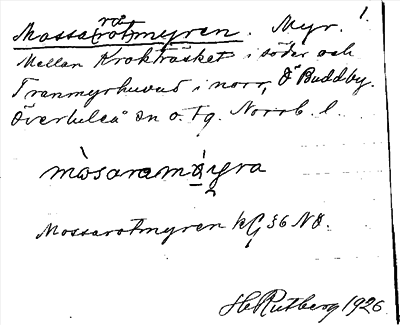 1.
Mossarotmyren. Myr.
Mellan Krokträsket i söder och
Tranmyrhuvud i norr, Ö Buddby.
Överluleå sn o. tg. Norrb. l.
Mossarotmyren kG 36 NO.
H. Rutberg 1926